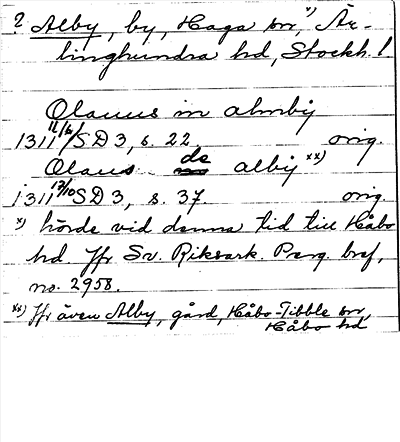 ? Alby, by, Haga sn, x) Är-
linghundra hd, Stockh. l.
Olauus in almby
1311 11/6 SD 3, s. 22 orig.
Olaus de alby xx)
1311 17/10 SD 3, s. 37 orig.
x) hörde vid denna tid till Håbo
hd. Jfr Sv. Riksark. Perg. bref,
no. 2958.
xx) Jfr även Alby, gård, Håbo-Tibble sn,
Håbo hd